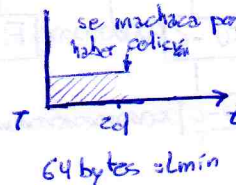 se machaca por
haber colisión
T
2d
t
64 bytes mín